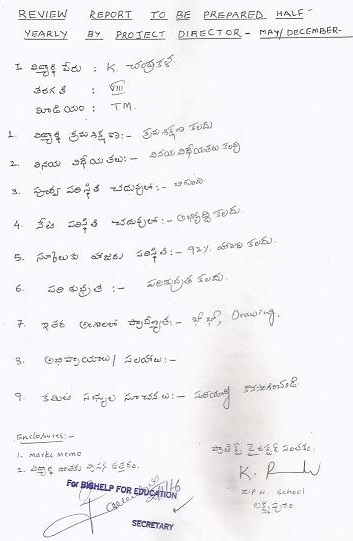 REVIEW REPORT TO BE PREPARED HALF-
YEARLY BY PROJECT DIRECTOR - MAY/DECEMBER-
I. విద్యార్థి పేరు : K. చంద్రకళ
తరగతి : VIII
మీడియం : TM.
1. విద్యార్థి క్రమశిక్షణ:- క్రమశిక్షణ కలదు
2. వినయ విధేయతలు:- వినయ విధేయతలు కలవి
3. పూర్వ పరిస్థితి చదువులో:- బాగుంది
4. నేటి పరిస్థితి చదువులో:- అభివృద్ధి కలదు.
5. స్కూలుకు హాజరు పరిస్థితి:- 92% హాజరు కలదు.
6. పరిశుభ్రత :- పరిశుభ్రత కలదు.
7. ఇతర అంశాలలో ప్రావీణ్యత:- ఖోఖో, Drawing.
8. అభిప్రాయాలు/ సలహాలు:-
9. కమిటి సభ్యుల సూచనలు:- సహాయాన్ని కొనసాగించండి.
Enclosures:-
1. Marks memo
2. విద్యార్థి
ప్రాజెక్ట్ డైరెక్టర్ సంతకం.
K.
Z.P.H. School
లక్ష్మీపురం
For BIGHELP FOR EDUCATION
SECRETARY